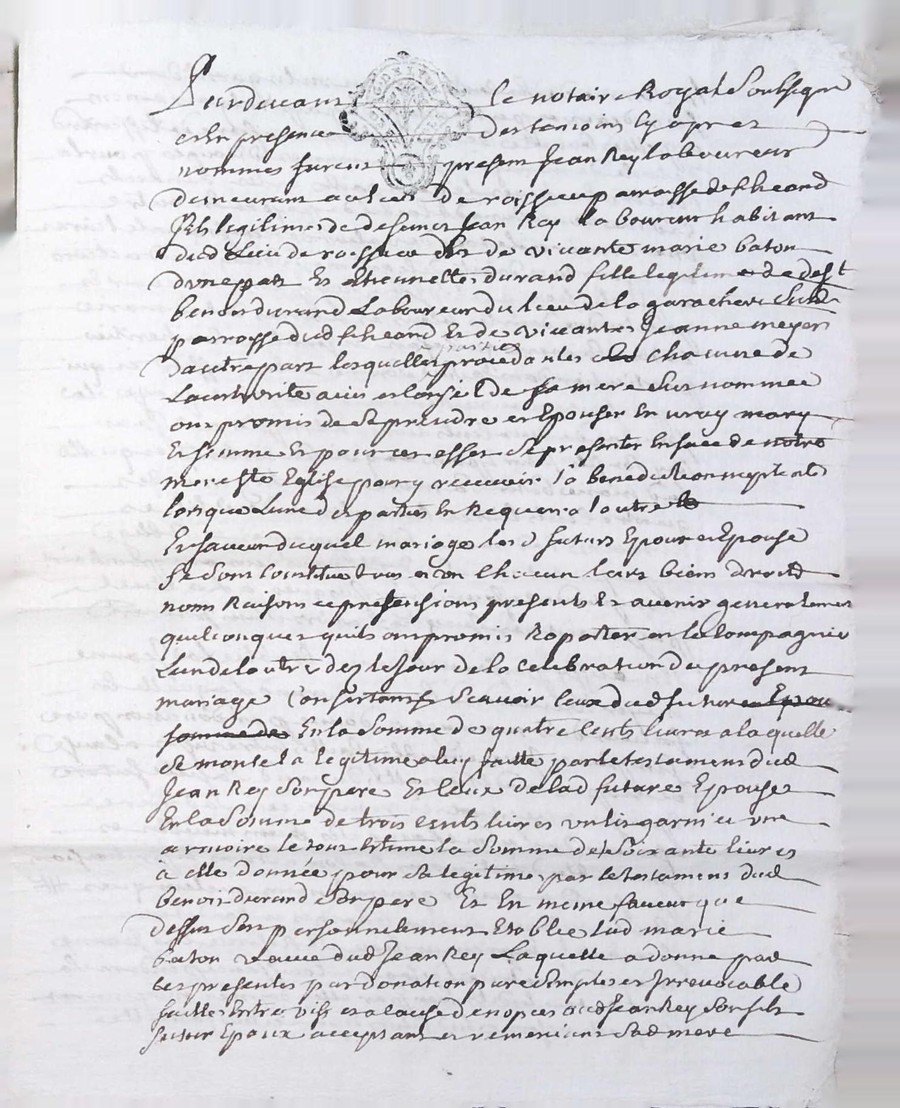 Pardevant le notaire Royal Soubsigné
et en presence des temoins cy apres
nommes furent present Jean Rey laboureur
demeurant au lieu de roisseu paroisse de Stheand
fils legitime de defunct Jean Rey laboureur habitant
dud lieu de roisseu et de vivante marie baton
dune part Et Etiennette durand fille legitime de deft
benoit durand Laboureur du lieu de la garachere susd
parroisse dud Stheand Et de vivante Jeanne meyer
dautre part lesquelles parties procedantes chacune de
Lauthorité avis et conseil de sa mere susnommée
ont promis de se prendre et Epouser En vray mary
Et femme Et pour cet effet se presenter En face de notre
mere Ste Eglise pour y recevoir la benediction nuptiale
lorsque Lune des parties En Requerra lautre
En faveur duquel mariage les d futurs Epoux et Epouse
se sont Constitué tous et un Chacun leurs biens droits
noms Raisons et prestensions presents Et avenir generalement
quelconques quils ont promis Raporter en la Compagnie
Lun de lautre dez le Jour de la Celebration du present
mariage Consistants Scavoir Ceux dud futur Epou
somme de En la Somme de quatre Cents livres a laquelle
se monte la legitime a luy faitte par le testament dud
Jean Rey Son pere Et Ceux de lad future Epouse
En la Somme de trois cents livres un lit garni et une
armoire le tout Estime la Somme de Soixante livres
à elle donnée pour Sa legitime par le testament dud
benoit durand Son pere Et En meme faveur que
dessus Sont personnelement Etablie lad marie
baton veuve dud Jean Rey Laquelle a donné par
ces presentes par donation pure Simple et Irrevocable
faitte Entre vifs et a cause de nopces aud Jean Rey Son fils
futur Epoux acceptant et remerciant Sad mere